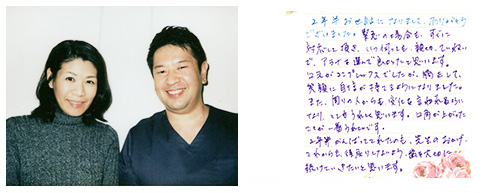 2年半お世話になりました。ありがとう
ございました。緊急の場合も、すぐに
対応して頂き、いつ伺っても、親切、ていねい
で、アライを選んで良かったと思います。
口元がコンプレックスでしたが、矯正して、
笑顔に自信が持てるようになりました。
また、周りの人からも変化を言われるように
なり、とてもうれしく思います。口角が上がった
ことが一番うれしいです。
2年半がんばってこれたのも、先生のおかげ。
これからも、後戻りしないよう、歯を大切に
続けていきたいと思います。